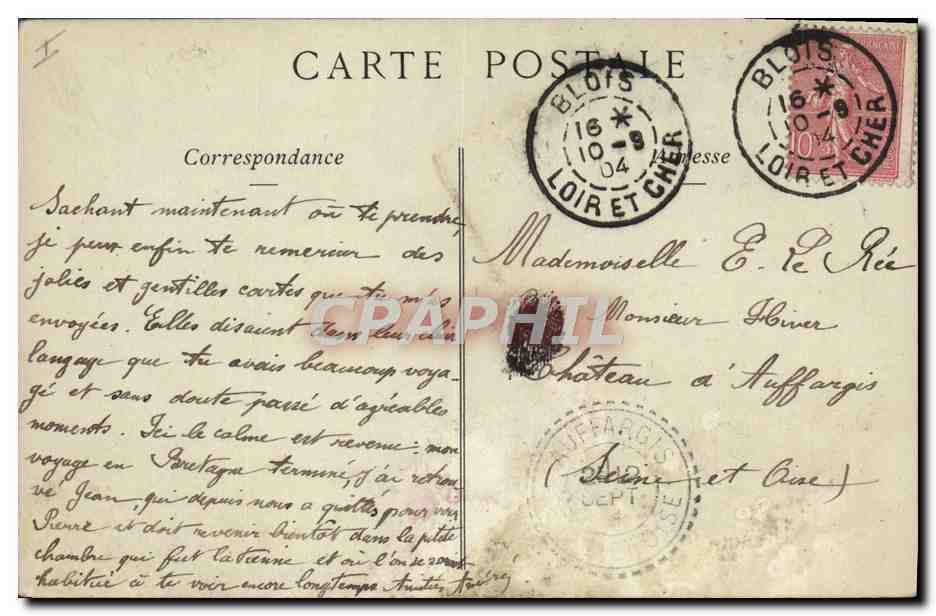 CARTE POSTALE
Correspondance
Adresse
BLOIS
16 *
10 - 9
04
LOIR ET CHER
BLOIS
16 *
10 - 9
04
LOIR ET CHER
10
I
Sachant maintenant où te prendre,
je peux enfin te remercier des
jolies et gentilles cartes que tu m'as
envoyées. Elles disaient dans leur clair
langage que tu avais beaucoup voya-
gé et sans doute passé d'agréables
moments. Ici le calme est revenu : mon
voyage en Bretagne terminé, j'ai retrou-
vé Jean, qui depuis nous a quittés pour voir
Pierre et doit revenir bientôt dans la petite
chambre qui fut la tienne et où l'on se sera
habitué à te voir encore longtemps. Amitiés
Mademoiselle E. Le Rée
Monsieur Hiver
Château d'Auffargis
(Seine et Oise)
AUFFARGIS
SEPT
OISE
CPARHIL